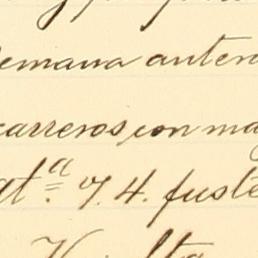 semana anter
carreros, con ma
at.ª 7. 4. fuste